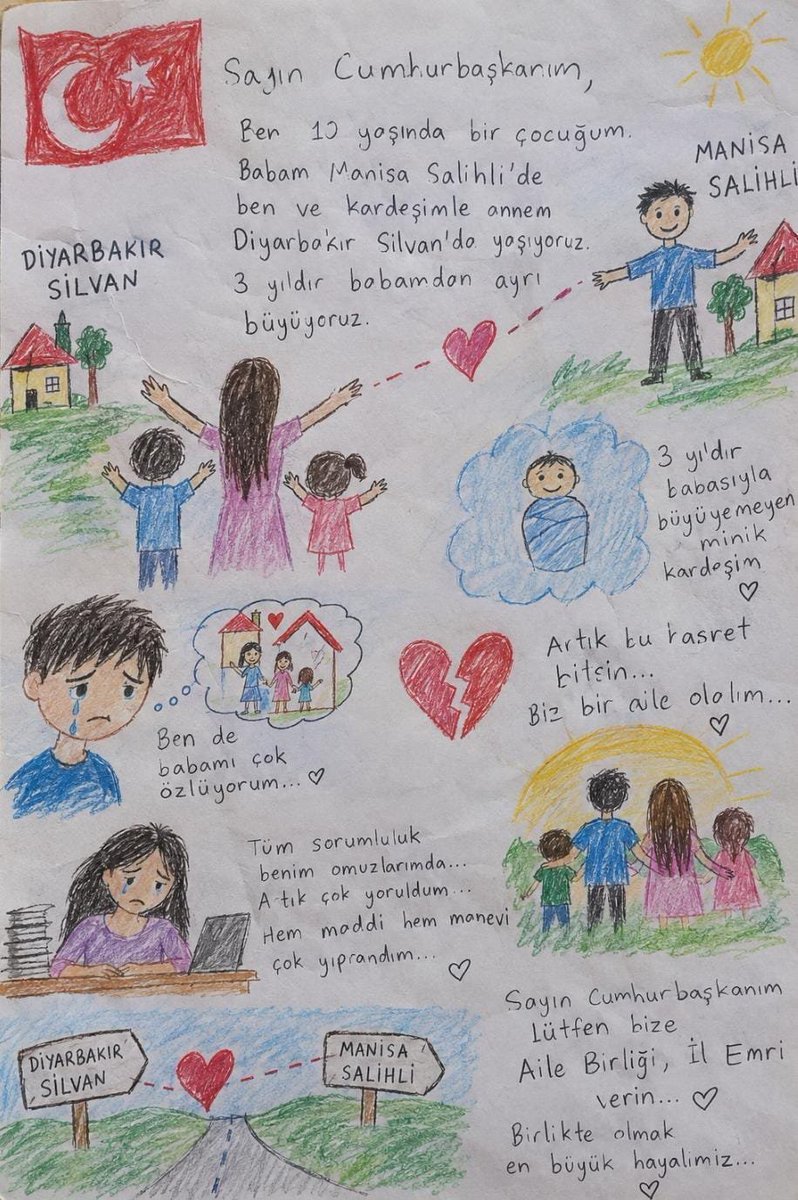 Sayın Cumhurbaşkanım,
Ben 10 yaşında bir çocuğum.
Babam Manisa Salihli'de
ben ve kardeşimle annem
Diyarbakır Silvan'da yaşıyoruz.
3 yıldır babamdan ayrı
büyüyoruz.
MANİSA
SALİHLİ
DİYARBAKIR
SİLVAN
3 yıldır
babasıyla
büyüyemeyen
minik
kardeşim
Artık bu hasret
bitsin...
Biz bir aile olalım...
Ben de
babamı çok
özlüyorum...
Tüm sorumluluk
benim omuzlarımda...
Artık çok yoruldum...
Hem maddi hem manevi
çok yıprandım...
DİYARBAKIR
SİLVAN
MANİSA
SALİHLİ
Sayın Cumhurbaşkanım
Lütfen bize
Aile Birliği, İl Emri
verin...
Birlikte olmak
en büyük hayalimiz...